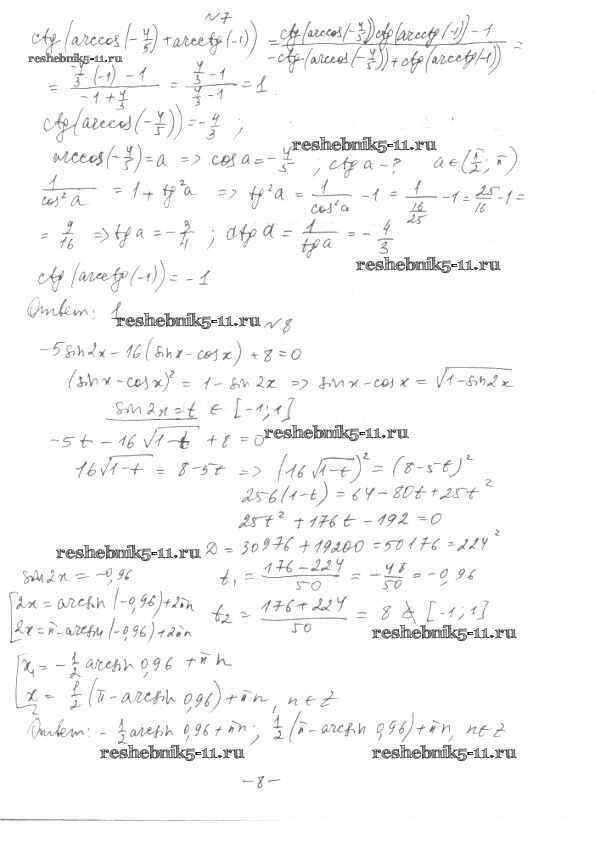 №7
ctg(arccos(-4/5)+arcctg(-1)) = (ctg(arccos(-4/5))ctg(arcctg(-1))-1)/(ctg(arccos(-4/5))+ctg(arcctg(-1))) =
reshebnik5-11.ru
= (-4/3 (-1) -1)/(-1+4/3) = (4/3 -1)/(4/3 -1) = 1.
ctg(arccos(-4/5)) = -4/3;
reshebnik5-11.ru
arccos(-4/5)=a => cos a = -4/5; ctg a - ? a∈(π/2; π)
1/cos²a = 1+tg²a => tg²a = 1/cos²a -1 = 1/(16/25) -1 = 25/16 -1 =
= 9/16 => tg a = -3/4; ctg a = 1/tg a = -4/3
reshebnik5-11.ru
ctg(arcctg(-1)) = -1
Ответ: 1
reshebnik5-11.ru
№8
-5sin2x-16(sinx-cosx)+8=0
(sinx-cosx)² = 1-sin2x => sinx-cosx = √(1-sin2x)
sin2x=t ∈ [-1;1]
reshebnik5-11.ru
-5t-16√(1-t)+8=0
16√(1-t) = 8-5t => (16√(1-t))² = (8-5t)²
256(1-t)=64-80t+25t²
25t²+176t-192=0
reshebnik5-11.ru
D=30976+19200=50176=224²
sin2x=-0,96
t₁ = (176-224)/50 = -48/50 = -0,96
2x=arcsin(-0,96)+2πn
2x=π-arcsin(-0,96)+2πn
t₂ = (176+224)/50 = 8 ∉ [-1;1]
reshebnik5-11.ru
x₁=-1/2 arcsin0,96+πn
x₂=1/2(π-arcsin0,96)+πn, n∈Z
Ответ: -1/2 arcsin0,96+πn; 1/2(π-arcsin0,96)+πn, n∈Z
reshebnik5-11.ru
reshebnik5-11.ru
-8-